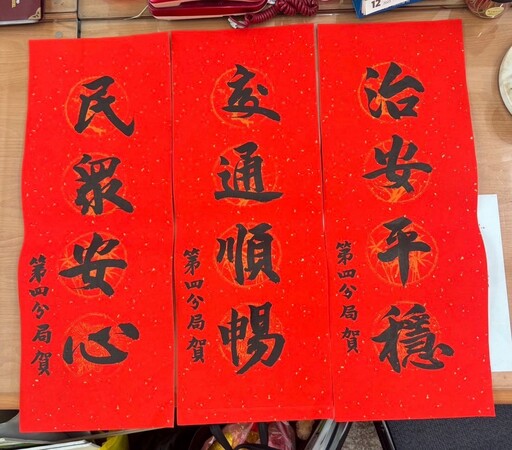 治安平穩
第四分局賀
交通順暢
第四分局賀
民眾安心
第四分局賀
12